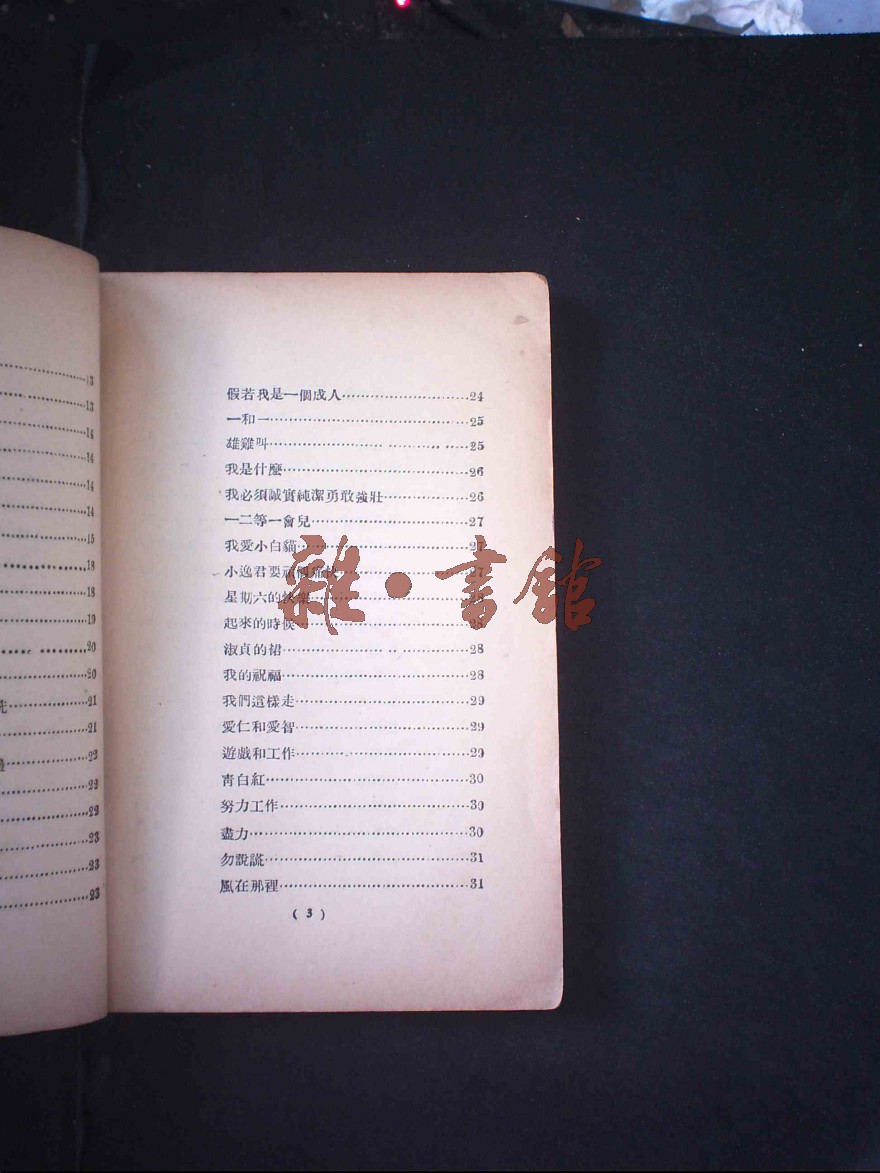 13
13
14
14
14
14
15
18
18
19
20
20
21
21
22
22
22
23
23
23
假若我是一個成人…………………………24
一和一…………………………25
雄雞叫…………………………25
我是什麼…………………………26
我必須誠實純潔勇敢強壯…………………………26
一二等一會兒…………………………27
我愛小白貓…………………………27
小逸君要…………………………27
星期六的快樂…………………………28
起來的時候…………………………28
淑貞的裙…………………………28
我的祝福…………………………28
我們這樣走…………………………29
愛仁和愛智…………………………29
遊戲和工作…………………………29
青白紅…………………………30
努力工作…………………………30
盡力…………………………30
勿說謊…………………………31
風在那裡…………………………31
(3)
雜·書館